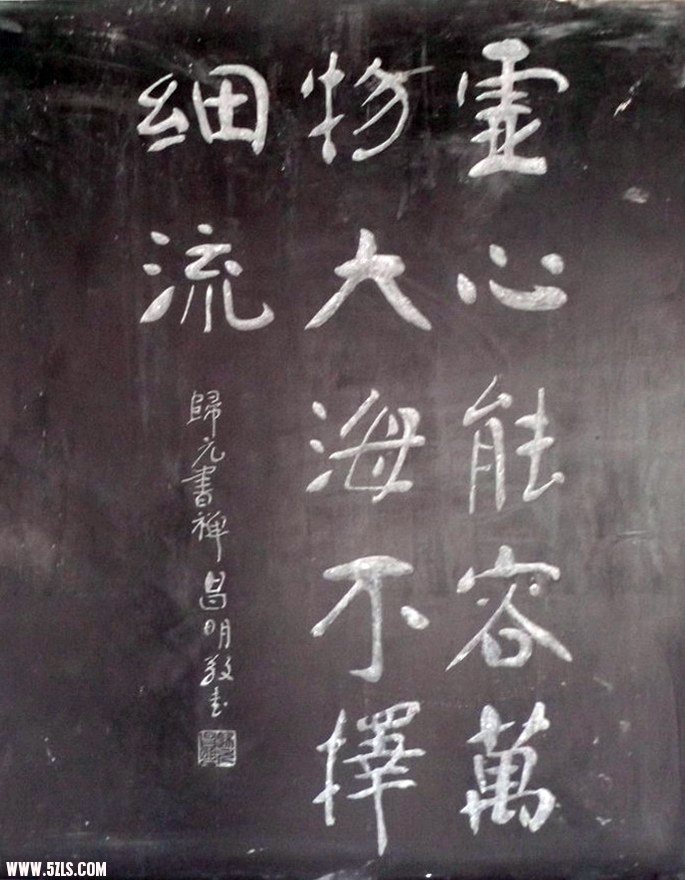 霊心能容萬
物大海不擇
細流
歸元書禪 昌明敬書
WWW.5ZLS.COM